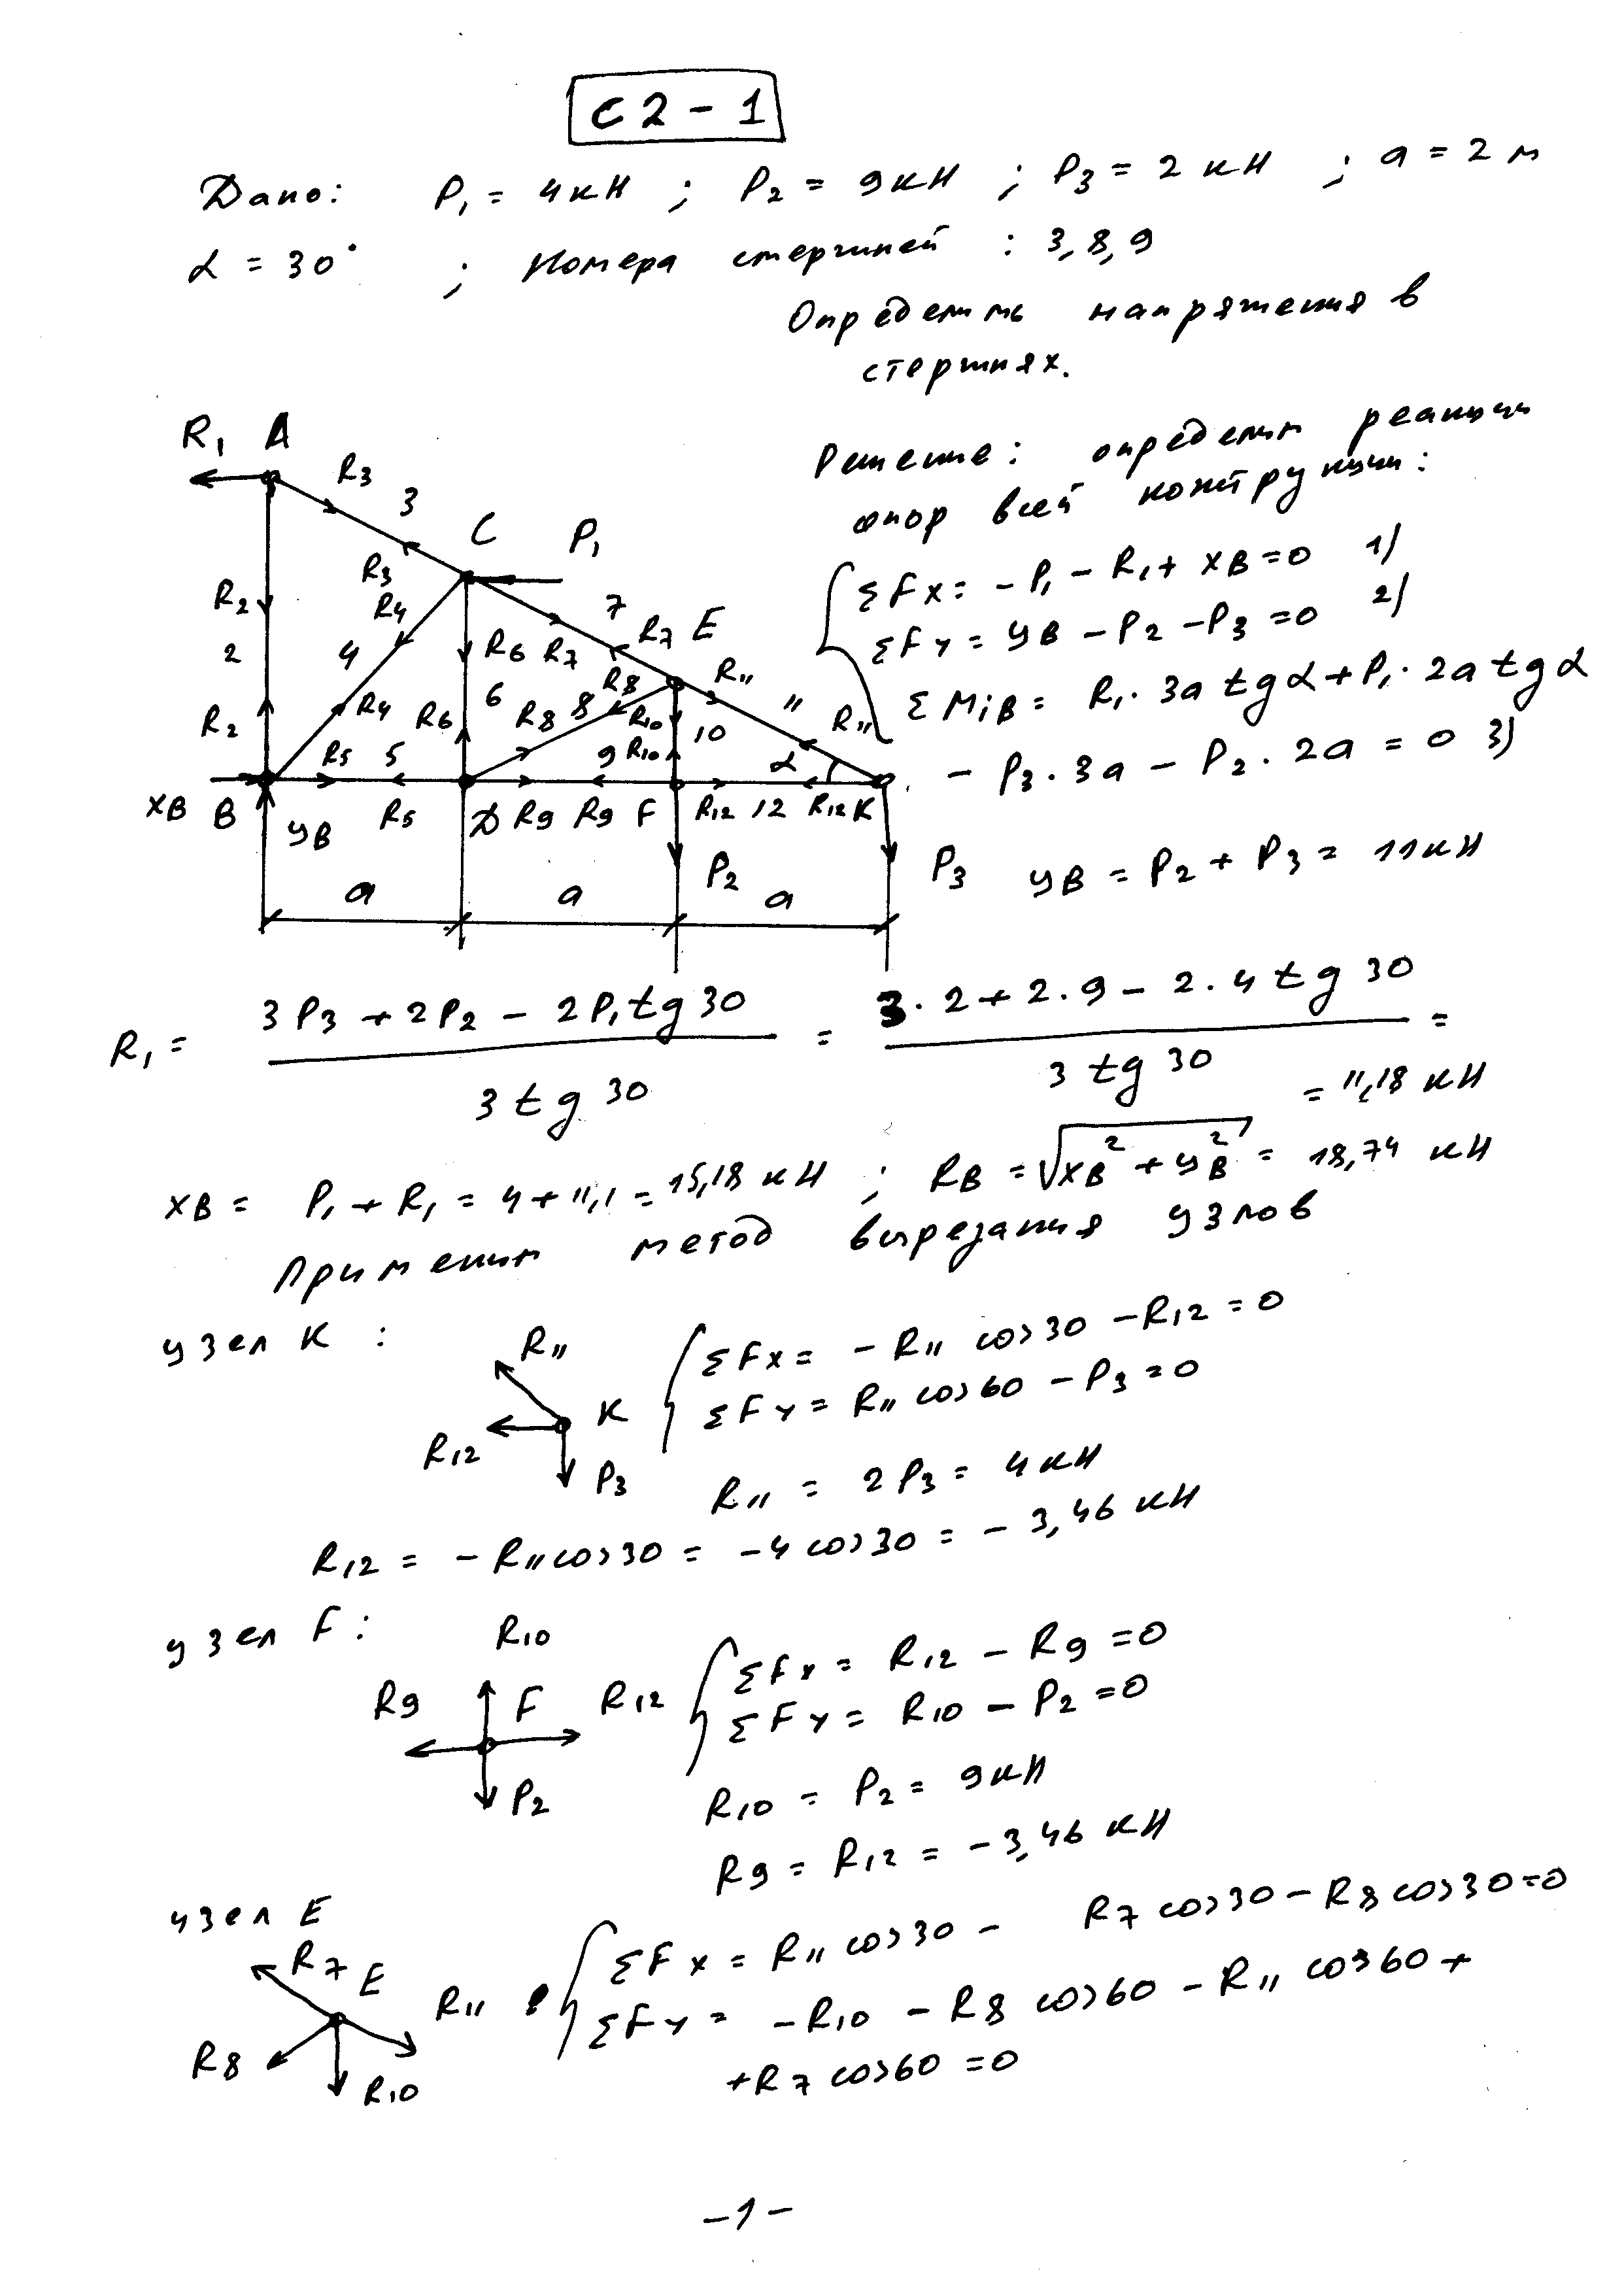 С2-1
Дано: P₁ = 4кН ; P₂ = 9кН ; P₃ = 2 кН ; a = 2 м
α = 30° ; Номера стержней : 3, 8, 9
Определить напряжения в
стержнях.
Решение: определим реакции
опор всей конструкции:
R₁ A
R3 3
C P₁
R3
R2 R4
2 4 R6 R7 7 R7 E
R8 R11
R2 R4 R6 6 R8 8 R10 10 11 R11
R5 5 9 R10 α
XB B YB R5 D R9 R9 F R12 12 R12 K
P₂ P₃
a a a
ΣFx = -P₁ - R₁ + XB = 0 1)
ΣFy = YB - P₂ - P₃ = 0 2)
ΣMiB = R₁· 3a tgα + P₁· 2a tgα
- P₃· 3a - P₂· 2a = 0 3)
YB = P₂ + P₃ = 11кН
R₁ = (3P₃ + 2P₂ - 2P₁tg 30) / (3 tg 30) = (3·2 + 2·9 - 2·4 tg 30) / (3 tg 30) =
= 11,18 кН
XB = P₁ + R₁ = 4 + 11,1 = 15,18 кН ; RB = √(XB² + YB²) = 18,74 кН
Применим метод вырезания узлов
узел K :
R11
K
R12
P₃
ΣFx = - R11 cos 30 - R12 = 0
ΣFy = R11 cos 60 - P₃ = 0
R11 = 2P₃ = 4кН
R12 = - R11 cos 30 = -4 cos 30 = - 3,46 кН
узел F :
R10
R9 F R12
P₂
ΣFx = R12 - R9 = 0
ΣFy = R10 - P₂ = 0
R10 = P₂ = 9кН
R9 = R12 = -3,46 кН
узел E
R7 E R11
R8
R10
ΣFx = R11 cos 30 - R7 cos 30 - R8 cos 30 = 0
ΣFy = -R10 - R8 cos 60 - R11 cos 60 +
+R7 cos 60 = 0
-1-